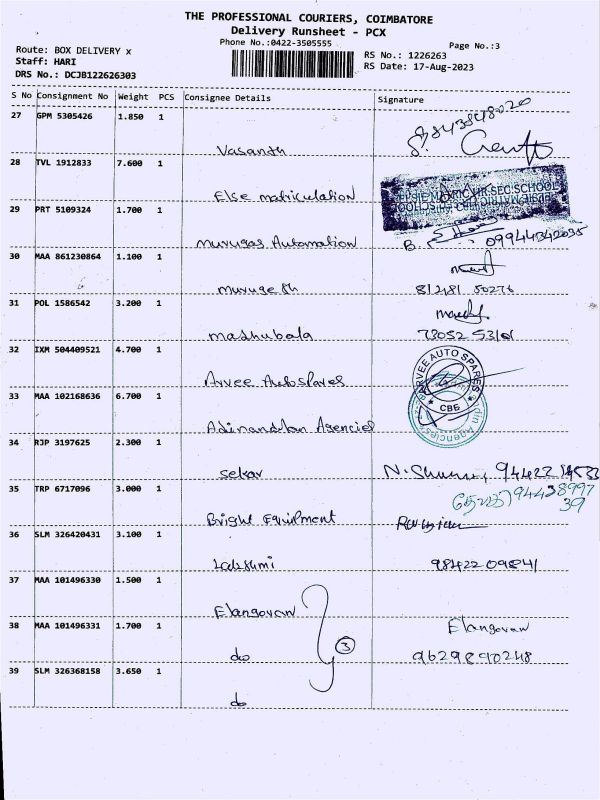 THE PROFESSIONAL COURIERS, COIMBATORE
Delivery Runsheet - PCX
Phone No.:0422-3505555
Page No.:3
Route: BOX DELIVERY x
Staff: HARI
DRS No.: DCJB122626303
RS No.: 1226263
RS Date: 17-Aug-2023
S No Consignment No Weight PCS Consignee Details Signature
27 GPM 5305426 1.850 1
Vasanth
28 TVL 1912833 7.600 1
Else matriculation
29 PRT 5109324 1.700 1
murugas Automation B. 09944342035
30 MAA 861230864 1.100 1
murugesh 81248 50276
31 POL 1586542 3.200 1
madhubala 73052 53101
32 IXM 504409521 4.700 1
Arvee Autospares ARVEE AUTO SPARES CBE
33 MAA 102168636 6.700 1
Adinandhan Agencies
34 RJP 3197625 2.300 1
Sekar N.
35 TRP 6717096 3.000 1
94438997
39
Bright Equipment
36 SLM 326420431 3.100 1
Lakshmi 98422 09841
37 MAA 101496330 1.500 1
Elangovan
38 MAA 101496331 1.700 1 Elangovan
do 3 9629890248
39 SLM 326368158 3.650 1
do